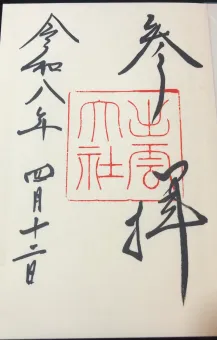 参拝
出雲大社
令和八年 四月十二日